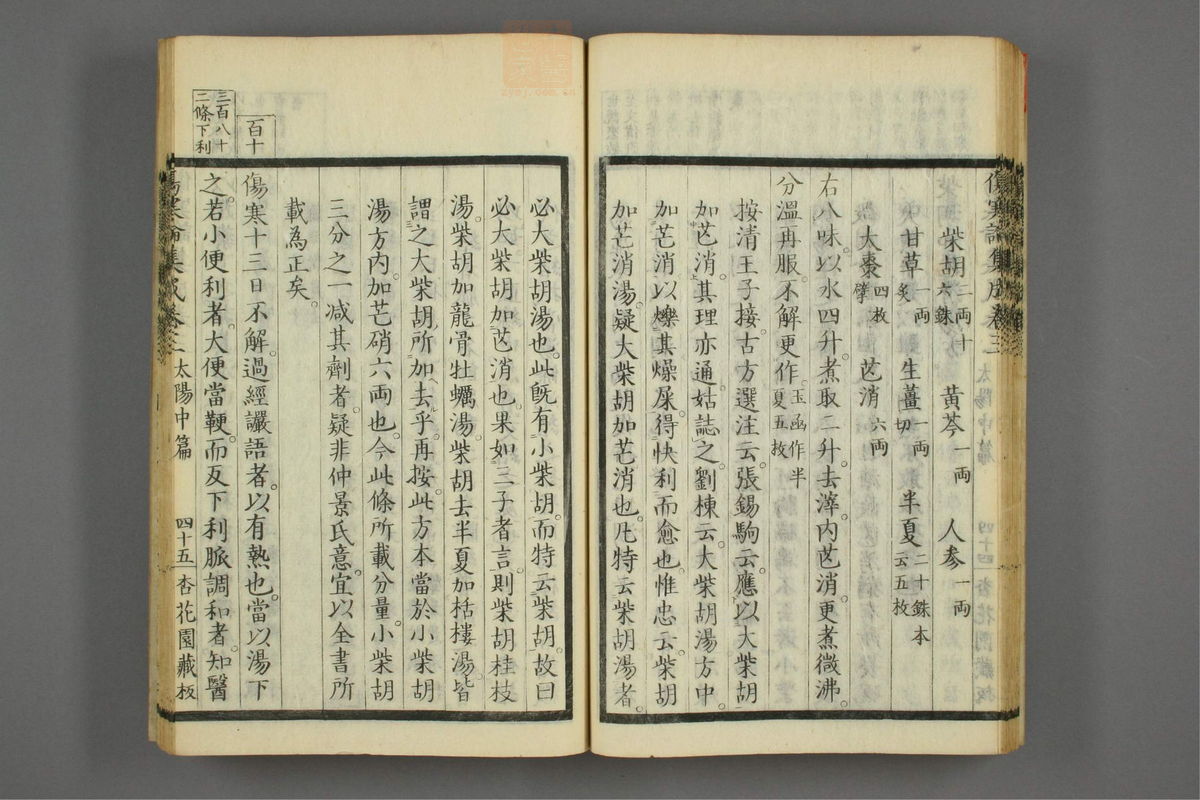 傷寒論集成卷三 太陽中篇 四十四 杏花園藏板
柴胡二両十六銖 黃芩一両 人参一両
甘草一両炙 生薑一両切 半夏二十銖本云五枚
大棗四枚擘 芒消六両
右八味。以水四升。煮取二升。去滓。内芒消。更煮微沸。
分溫再服。不解更作。玉函作半夏五枚
按清王子接。古方選注云。張錫駒云。應以大柴胡
加芒消。其理亦通。姑誌之。劉棟云。大柴胡湯方中。
加芒消。以爍其燥屎。得快利而愈也。惟忠云。柴胡
加芒消湯。疑大柴胡加芒消也。凡特云柴胡湯者。
必大柴胡湯也。此既有小柴胡。而特云柴胡。故曰
必大柴胡加芒消也。果如三子者言。則柴胡桂枝
湯。柴胡加龍骨牡蠣湯。柴胡去半夏加栝樓湯。皆
謂之大柴胡所加去乎。再按。此方本當於小柴胡
湯方内。加芒硝六両也。今此條所載分量。小柴胡
三分之一。减其劑者。疑非仲景氏意。宜以全書所
載為正矣。
百十
傷寒十三日不解。過經讝語者。以有熱也。當以湯下
三百八十
二條下利
之。若小便利者。大便當鞕。而反下利。脈調和者。知醫
傷寒論集成卷三 太陽中篇 四十五 杏花園藏板
zysj.com.cn